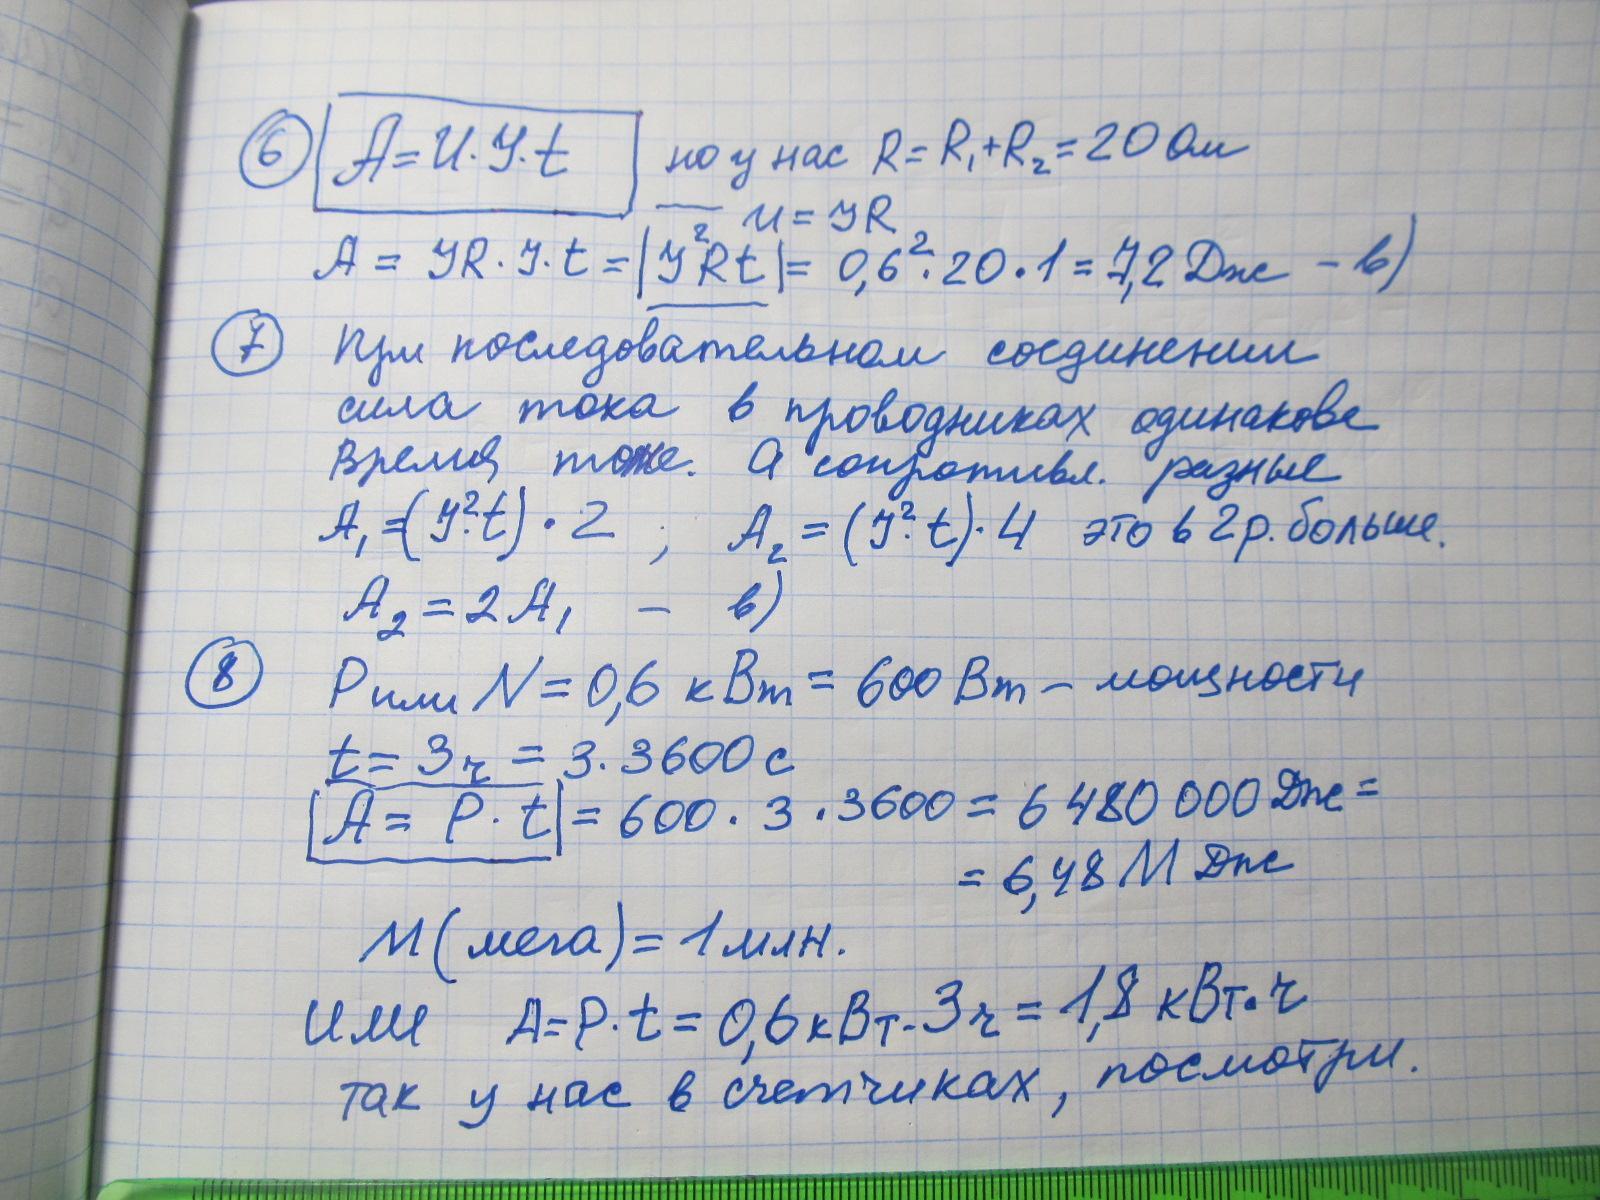 6 A = U · I · t но у нас R = R₁ + R₂ = 20 Ом
U = IR
A = IR · I · t = |I²Rt| = 0,6² · 20 · 1 = 7,2 Дж – в)
7 При последовательном соединении
сила тока в проводниках одинакова
время тоже. А сопротивл. разные
A₁ = (I²·t) · 2 ; A₂ = (I²·t) · 4 это в 2 р. больше.
A₂ = 2A₁ – в)
8 P или N = 0,6 кВт = 600 Вт – мощности
t = 3ч = 3 · 3600 с
A = P · t = 600 · 3 · 3600 = 6 480 000 Дж =
= 6,48 М Дж
М (мега) = 1 млн.
Или A = P · t = 0,6 кВт · 3ч = 1,8 кВт·ч
так у нас в счетчиках, посмотри.